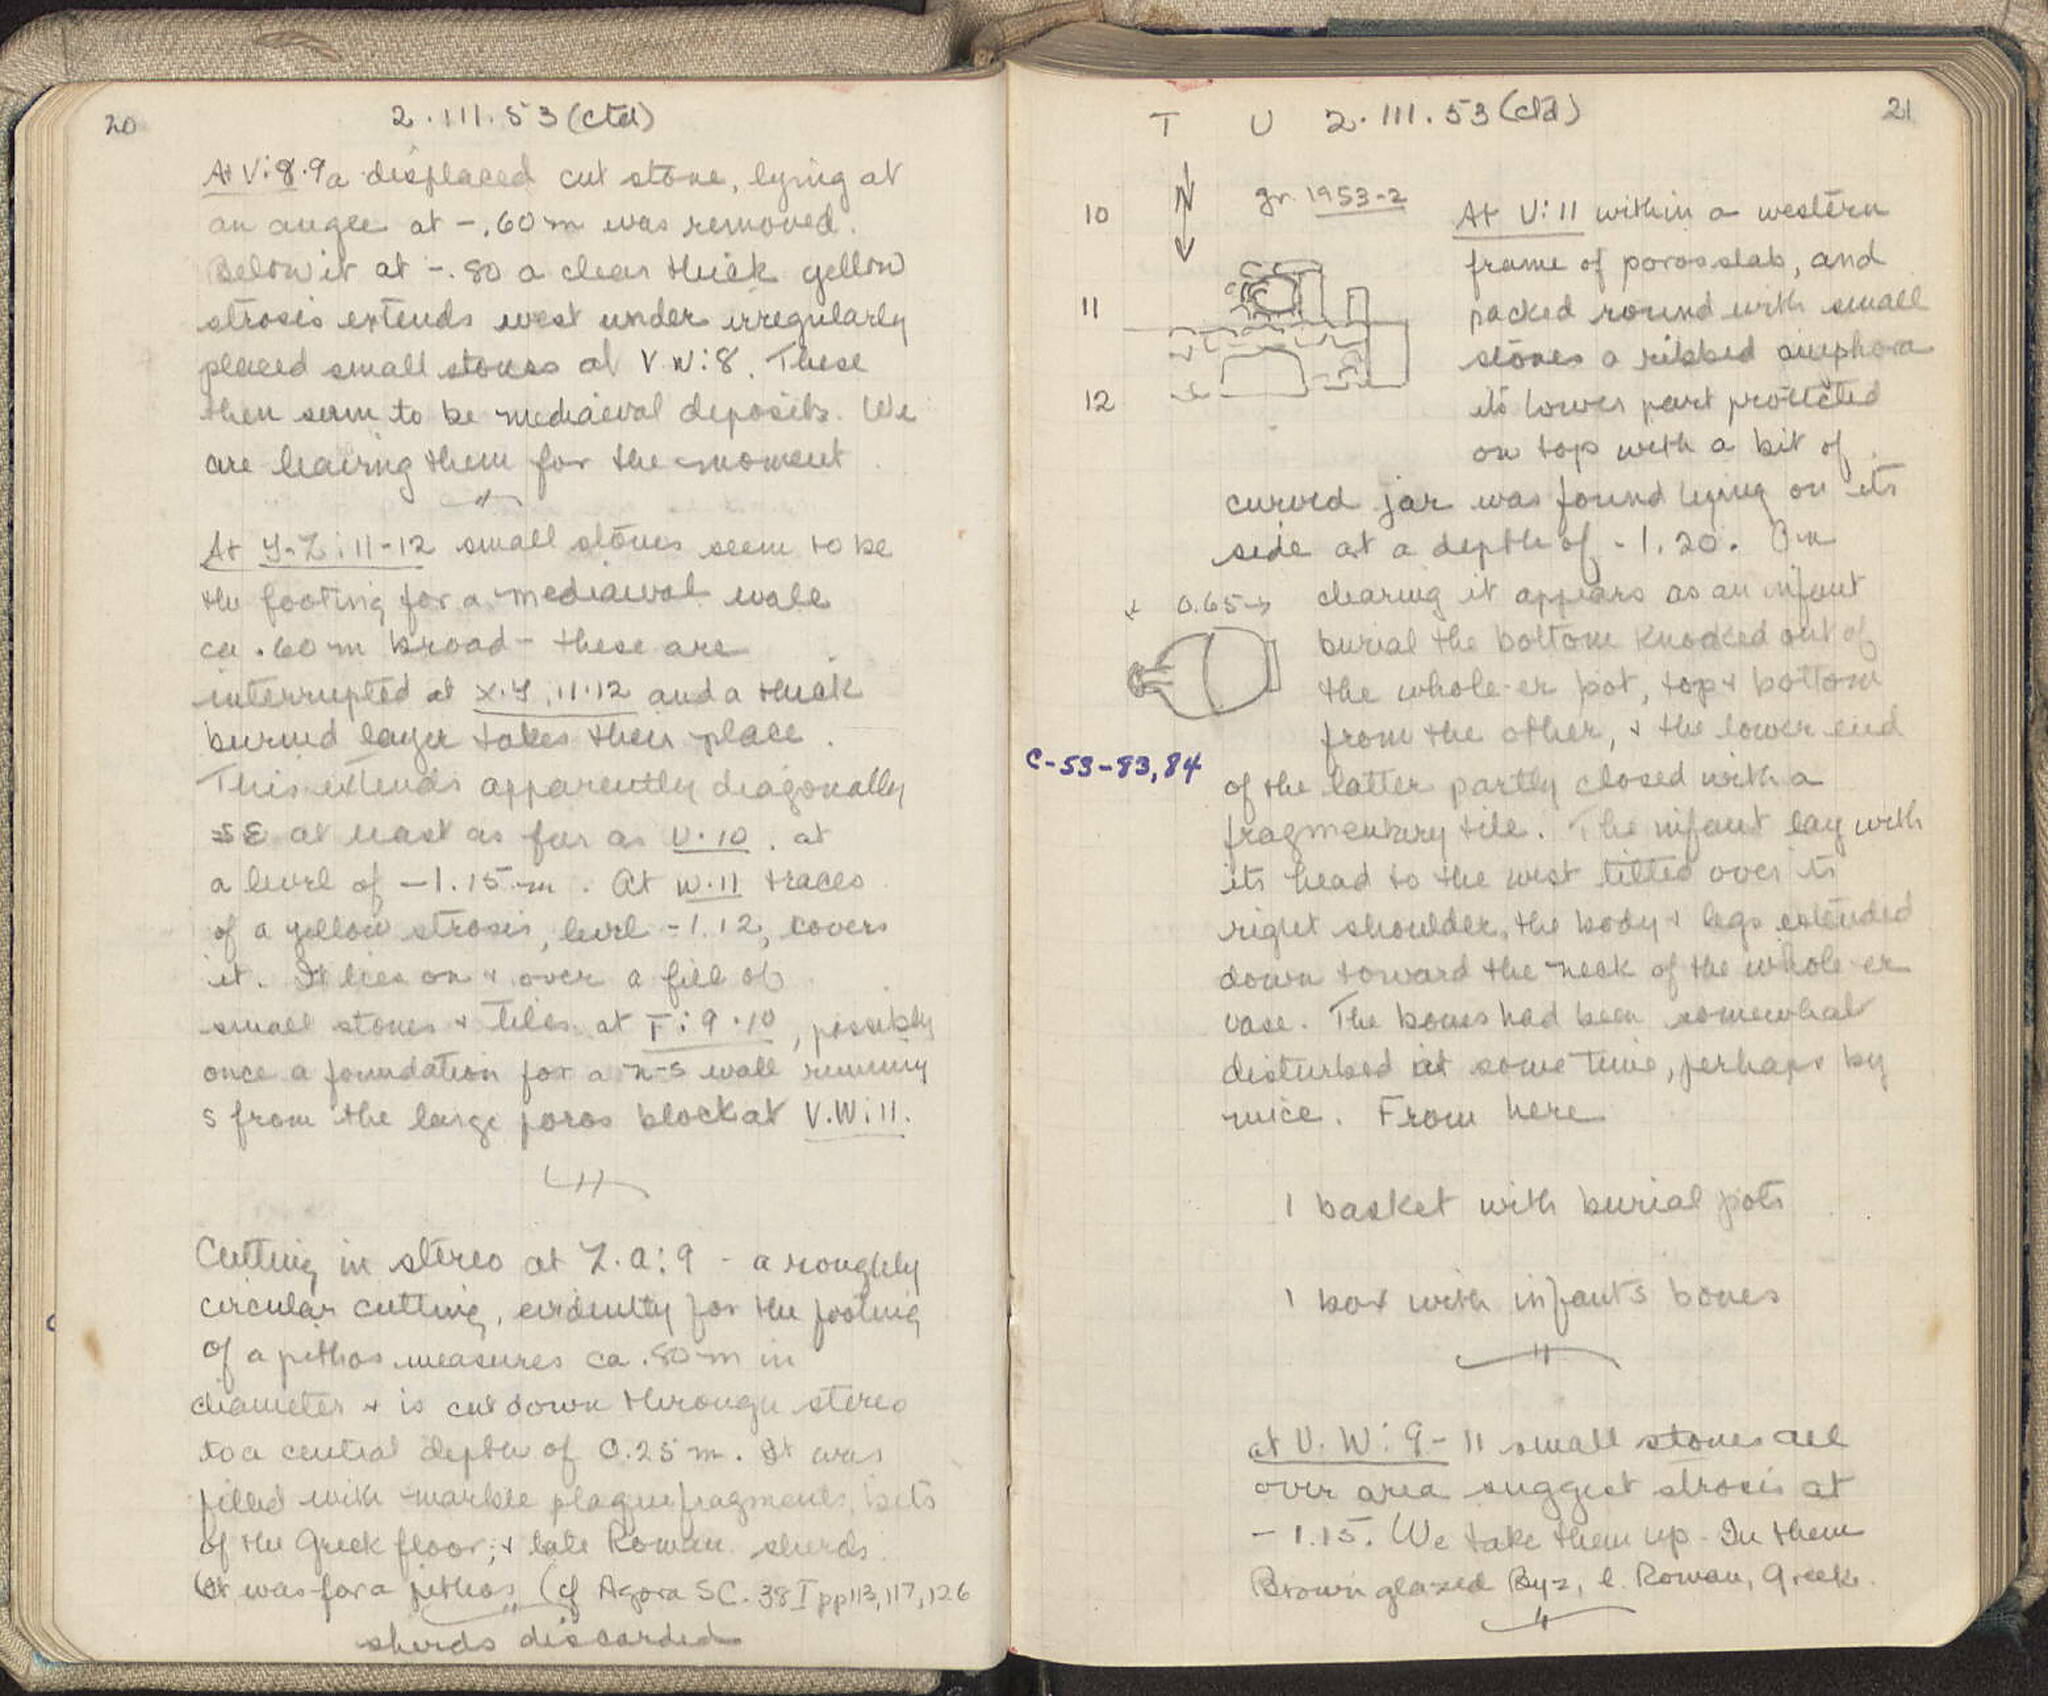 20
2.III.53 (ctd)
At V:8.9 a displaced cut stone, lying at
an angle at -.60 m was removed.
Below it at -.80 a clear thick yellow
strosis extends west under irregularly
placed small stones at V.W:8. These
then seem to be mediaeval deposits. We
are leaving them for the moment
At Y-Z:11-12 small stones seem to be
the footing for a mediaeval wall
ca .60 m broad - these are
interrupted at X.Y:11.12 and a thick
burned layer takes their place.
This extends apparently diagonally
SE at least as far as U.10. at
a level of -1.15 m. At W.11 traces
of a yellow strosis, level -1.12, covers
it. It lies on & over a fill of
small stones & tiles at T:9.10, possibly
once a foundation for a N-S wall running
S from the large poros block at V.W:11.
Cutting in stereo at Z.A:9 - a roughly
circular cutting, evidently for the footing
of a pithos measures ca .80 m in
diameter & is cut down through stereo
to a central depth of 0.25 m. It was
filled with marble plaque fragments, bits
of the Greek floor, & late Roman sherds.
It was for a pithos (cf Agora SC. 38 I pp 113, 117, 126
sherds discarded
21
T U 2.III.53 (ctd)
N
gr. 1953-2
10
11
12
At U:11 within a western
frame of poros slab, and
packed round with small
stones a ribbed amphora
its lower part protected
on top with a bit of
curved jar was found lying on its
side at a depth of -1.20. On
clearing it appears as an infant
burial the bottom knocked out of
the whole-er pot, top & bottom
from the other, & the lower end
0.65
C-53-83,84
of the latter partly closed with a
fragmentary tile. The infant lay with
its head to the west tilted over its
right shoulder, the body & legs extended
down toward the neck of the whole-er
vase. The bones had been somewhat
disturbed at some time, perhaps by
mice. From here
1 basket with burial pots
1 box with infant's bones
at V.W:9-11 small stones all
over area suggest strosis at
-1.15. We take them up. In them
Brown glazed Byz, l. Roman, Greek.